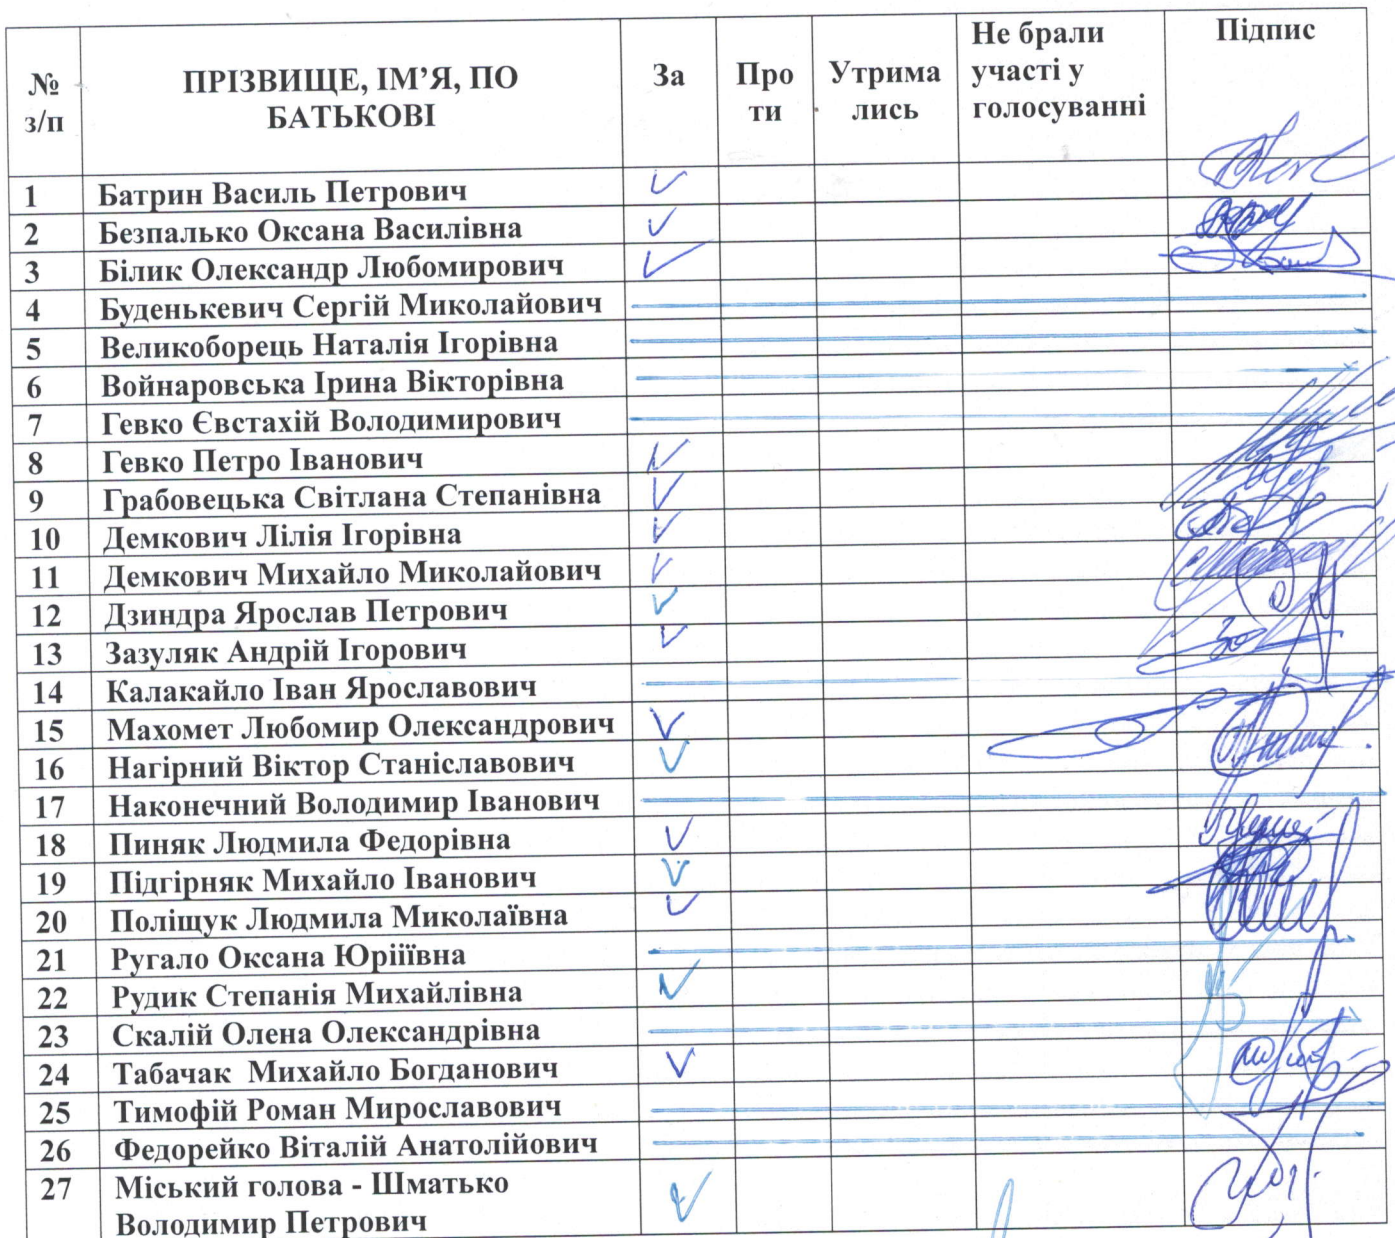 № з/п ПРІЗВИЩЕ, ІМ’Я, ПО БАТЬКОВІ За Про ти Утрима лись Не брали участі у голосуванні Підпис
1 Батрин Василь Петрович
2 Безпалько Оксана Василівна
3 Білик Олександр Любомирович
4 Буденькевич Сергій Миколайович
5 Великоборець Наталія Ігорівна
6 Войнаровська Ірина Вікторівна
7 Гевко Євстахій Володимирович
8 Гевко Петро Іванович
9 Грабовецька Світлана Степанівна
10 Демкович Лілія Ігорівна
11 Демкович Михайло Миколайович
12 Дзиндра Ярослав Петрович
13 Зазуляк Андрій Ігорович
14 Калакайло Іван Ярославович
15 Махомет Любомир Олександрович
16 Нагірний Віктор Станіславович
17 Наконечний Володимир Іванович
18 Пиняк Людмила Федорівна
19 Підгірняк Михайло Іванович
20 Поліщук Людмила Миколаївна
21 Ругало Оксана Юрііївна
22 Рудик Степанія Михайлівна
23 Скалій Олена Олександрівна
24 Табачак Михайло Богданович
25 Тимофій Роман Мирославович
26 Федорейко Віталій Анатолійович
27 Міський голова - Шматько
Володимир Петрович